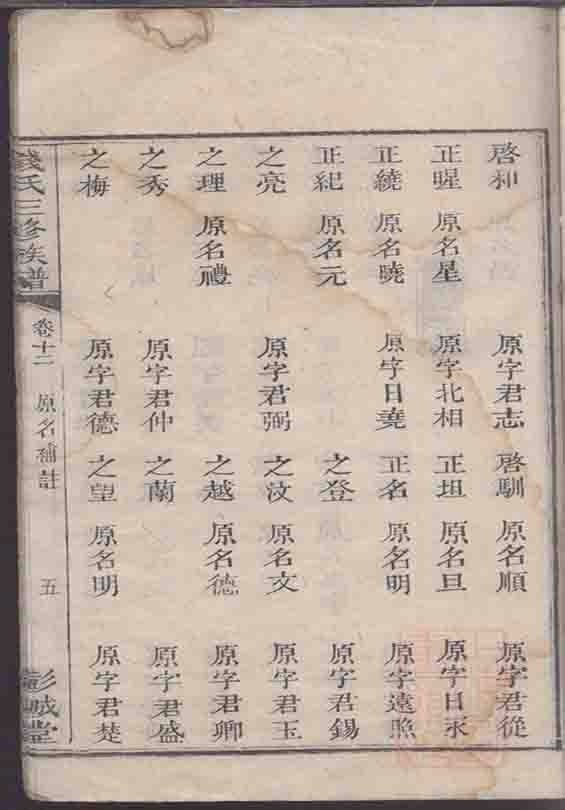 啓和 原字君志 啓馴 原名順 原字君從
正暒 原名星 原字北相 正坦 原名旦 原字日永
正繞 原名曉 原字日堯 正名 原名明 原字遠照
正紀 原名元 之登 原字君錫
之亮 原字君弼 之汶 原名文 原字君玉
之理 原名禮 之越 原名德 原字君卿
之秀 原字君仲 之蘭 原字君盛
之梅 原字君德 之望 原名明 原字君楚
錢氏三修族譜 卷十二 原名補註 五 彭城堂